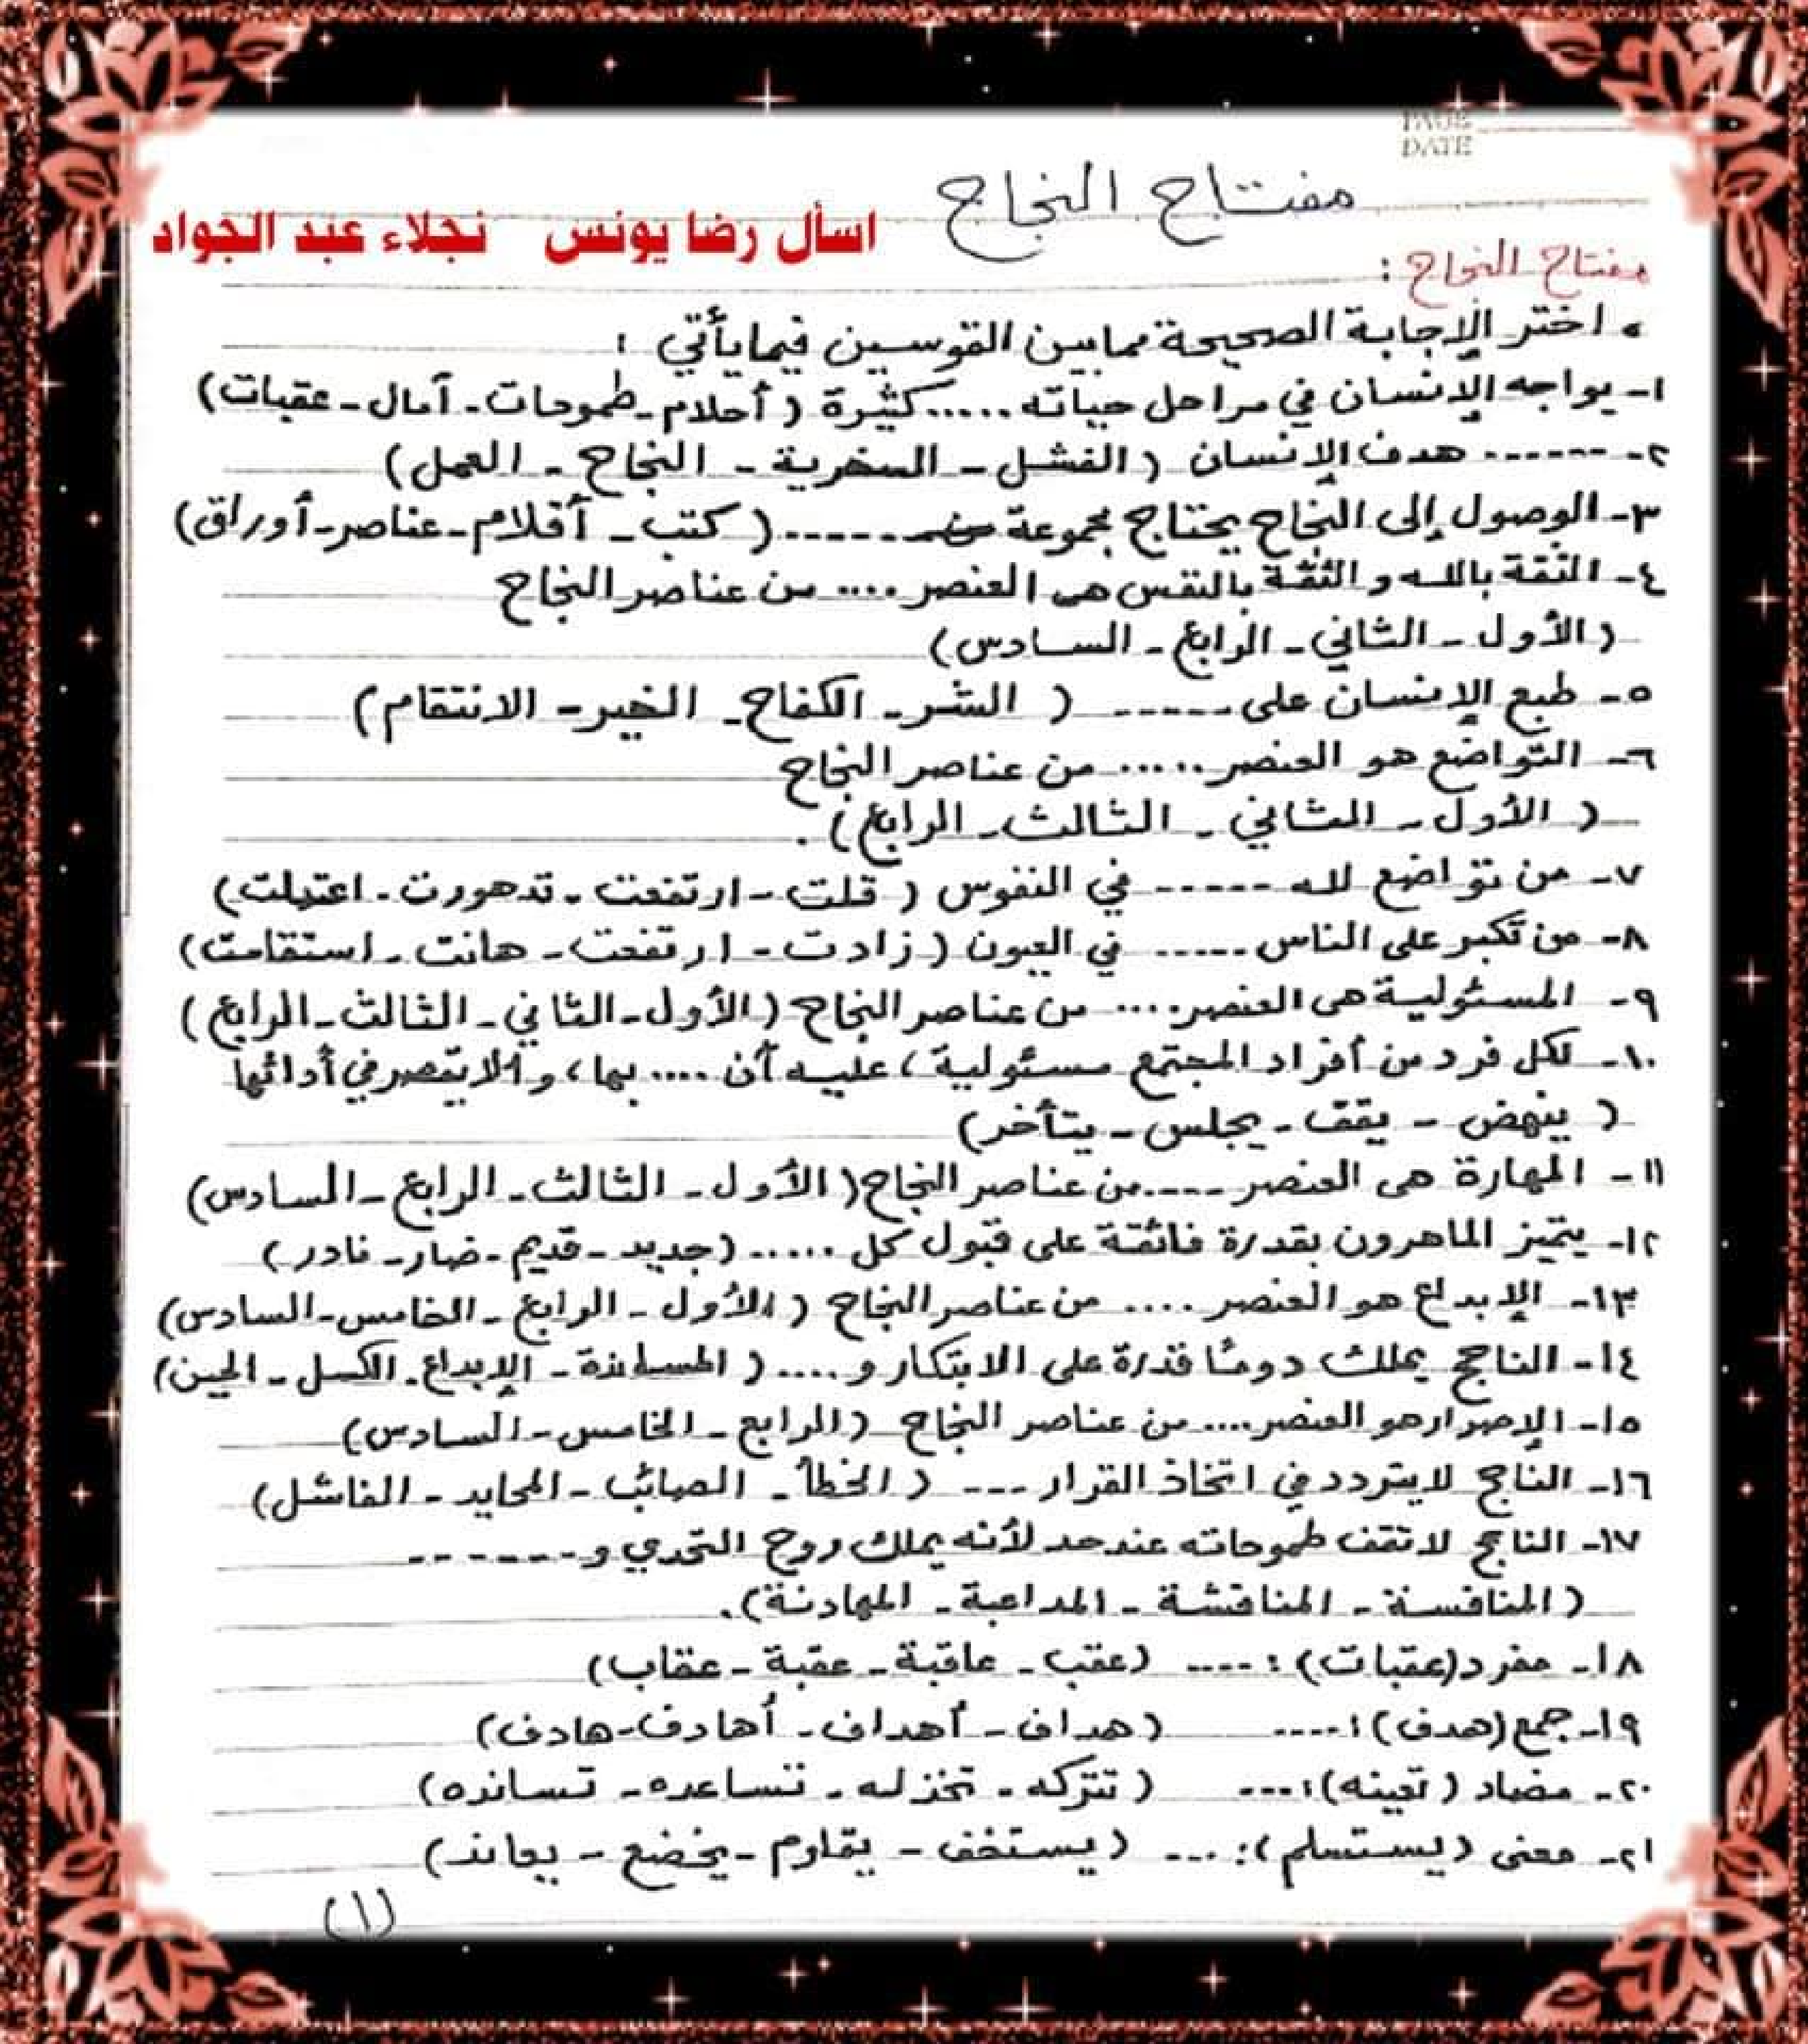 PAGE
DATE
مفتاح النجاح
اسأل رضا يونس نجلاء عبد الجواد
مفتاح النجاح :
• اختر الإجابة الصحيحة مما بين القوسين فيما يأتي :
١- يواجه الإنسان في مراحل حياته ...... كثيرة ( أحلام - طموحات - آمال - عقبات )
٢- ------ هدف الإنسان ( الفشل - السخرية - النجاح - العمل )
٣- الوصول إلى النجاح يحتاج مجموعة من ------ ( كتب - أقلام - عناصر - أوراق )
٤- الثقة بالله والثقة بالنفس هى العنصر .... من عناصر النجاح
( الأول - الثاني - الرابع - السادس )
٥- طبع الإنسان على ------ ( الشر - الكفاح - الخير - الانتقام )
٦- التواضع هو العنصر ...... من عناصر النجاح
( الأول - الثاني - الثالث - الرابع ) .
٧- من تواضع لله ----- في النفوس ( قلت - ارتفعت - تدهورت - اعتدلت )
٨- من تكبر على الناس ----- في العيون ( زادت - ارتفعت - هانت - استقامت )
٩- المسئولية هى العنصر .... من عناصر النجاح ( الأول - الثاني - الثالث - الرابع )
١٠- لكل فرد من أفراد المجتمع مسئولية ، عليه أن .... بها ، وألا يقصر في أدائها
( ينهض - يقف - يجلس - يتأخر )
١١- المهارة هى العنصر ---- من عناصر النجاح ( الأول - الثالث - الرابع - السادس )
١٢- يتميز الماهرون بقدرة فائقة على قبول كل ...... ( جديد - قديم - ضار - نادر )
١٣- الإبداع هو العنصر .... من عناصر النجاح ( الأول - الرابع - الخامس - السادس )
١٤- الناجح يملك دومًا قدرة على الابتكار و .... ( المساندة - الإبداع - الكسل - الجبن )
١٥- الإصرار هو العنصر .... من عناصر النجاح ( الرابع - الخامس - السادس )
١٦- الناجح لا يتردد في اتخاذ القرار --- ( الخطأ - الصائب - المحايد - الفاشل )
١٧- الناجح لا تقف طموحاته عند حد لأنه يملك روح التحدي و ------
( المنافسة - المناقشة - المداعبة - المهادنة ) .
١٨- مفرد ( عقبات ) : ---- ( عقب - عاقبة - عقبة - عقاب )
١٩- جمع ( هدف ) : ---- ( هداف - أهداف - أهادف - هادف )
٢٠- مضاد ( تعينه ) : --- ( تتركه - تخذله - تساعده - تسانده )
٢١- معنى ( يستسلم ) : --- ( يستخف - يقاوم - يخضع - يعاند )
(١)